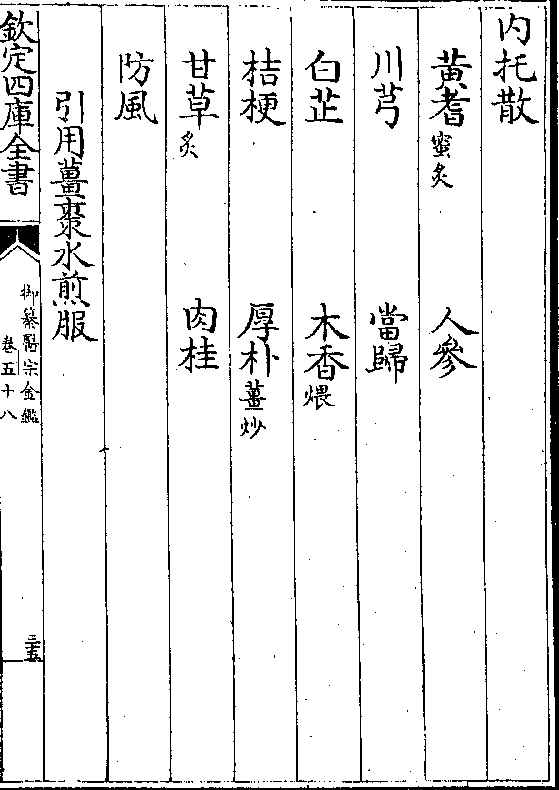 内托散
黄耆蜜炙　人參
川芎　當歸
白芷　木香煨
桔梗　厚朴薑炒
甘草炙　肉桂
防風
引用薑棗水煎服
欽定四庫全書
御纂醫宗金鑑
卷五十八
三十五